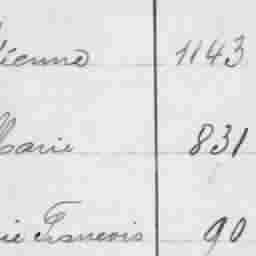 ienne 1143
Marie 831
ie François 90